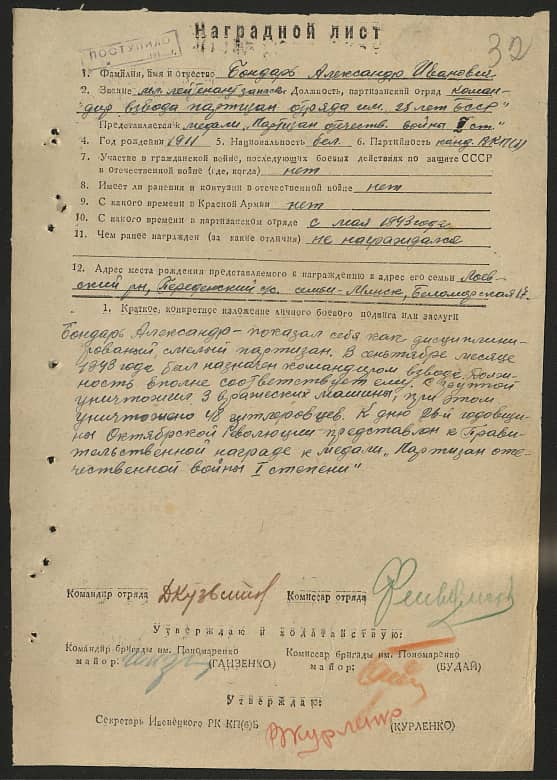 Наградной лист
ПОСТУПИЛО
32
1. Фамилия, имя и отчество Бондарь Александр Иванович
2. Звание мл. лейтенант запаса. Должность, партизанский отряд коман-
дир взвода партизан отряда им. 25 лет БССР"
Представляется к медали „Партизан отечеств. войны I ст."
4. Год рождения 1911 5. Национальность бел. 6. Партийность канд. ВКП(б)
7. Участие в гражданской войне, последующих боевых действиях по защите СССР
в отечественной войне (где, когда) нет
8. Имеет ли ранения и контузии в отечественной войне нет
9. С какого времени в Красной Армии нет
10. С какого времени в партизанском отряде с мая 1943 года
11. Чем ранее награжден (за какие отличия) не награждался
12. Адрес места рождения представляемого к награждению и адрес его семьи Лоев-
ский рн, семьи – Минск, Беломорская 17.
1. Краткое, конкретное изложение личного боевого подвига или заслуги
Бондарь Александр – показал себя как дисциплини-
рованый, смелый партизан. В сентябре месяце
1943 года был назначен командиром взвода. Долж-
ность вполне соответствует ему. С группой
уничтожил 3 вражеских машины, при этом
уничтожено 48 гитлеровцев. К дню 26й годовщи-
ны Октябрской Революции представлен к Прави-
тельственной награде к медали „Партизан оте-
чественной войны I степени"
Командир отряда ДКузьмин Комиссар отряда
Утверждаю и ходатайствую:
Командир бригады им. Пономаренко Комиссар бригады им. Пономаренко
майор: (ГАЦЗЕНКО) майор: (БУДАЙ)
Утверждаю:
Секретарь Ивенецкого РК КП(б)Б Журленко (КУРЛЕНКО)